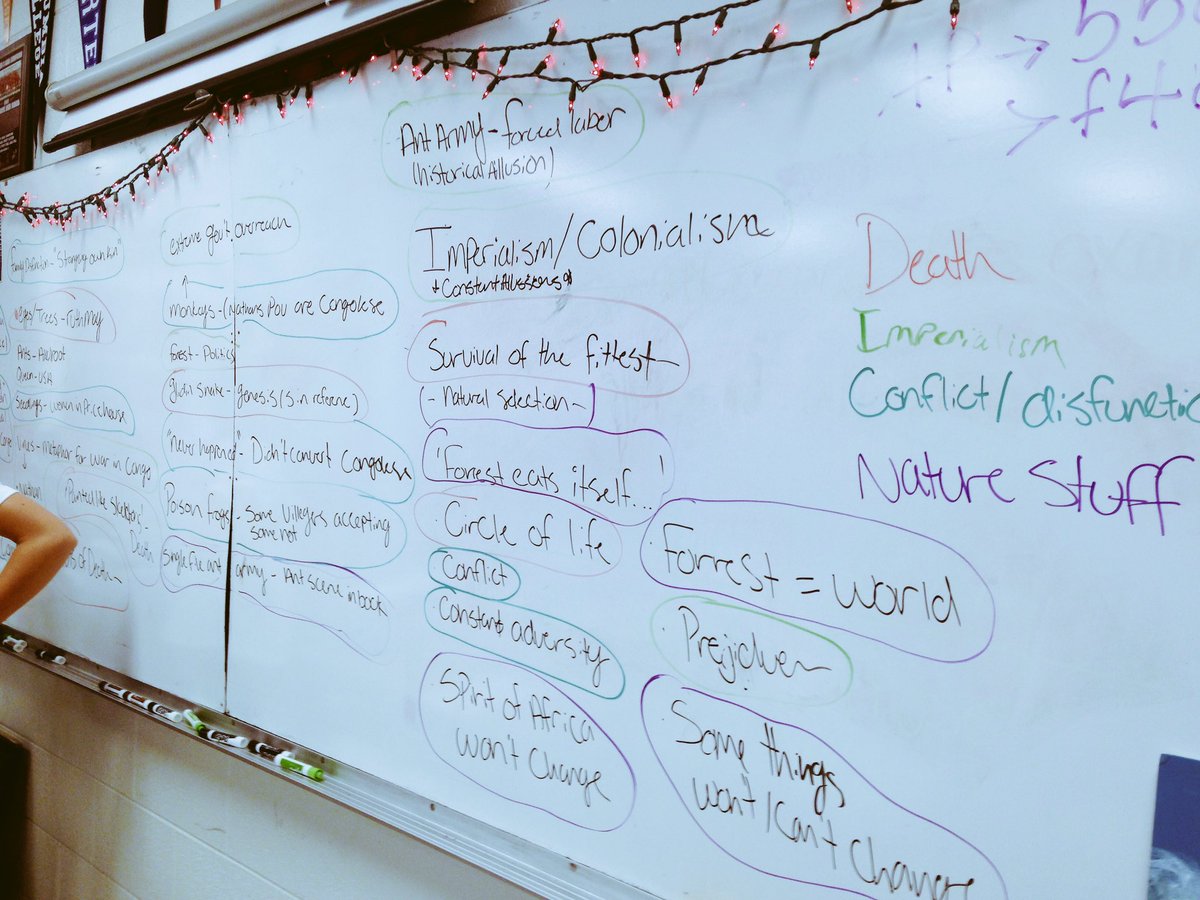 Ant Army - forced labor
(historical Allusion)
Imperialism/Colonialism
Constant Allusions
Survival of the fittest
- Natural selection -
"Forrest eats itself..."
Circle of life
Conflict
Constant adversity
Spirit of Africa
won't change
Forrest = world
Some things
won't/can't change
extreme gov't. overreach
monkeys - (Nathans POV are Congolese
forest - Politics
snake - genesis (s in reference)
"never happened" - Didn't convert Congolese
Poison frogs - Some villagers accepting
some not
single file ant army - Ant scene in book
eyes/Trees - ruth may
Ants -
Queen - USA
seedlings - women in Price house
vines - metaphor for war in Congo
"Painted like skeletons"
Death
of Death
Death
Imperialism
Conflict/disfunctio
Nature Stuff
AP → 55